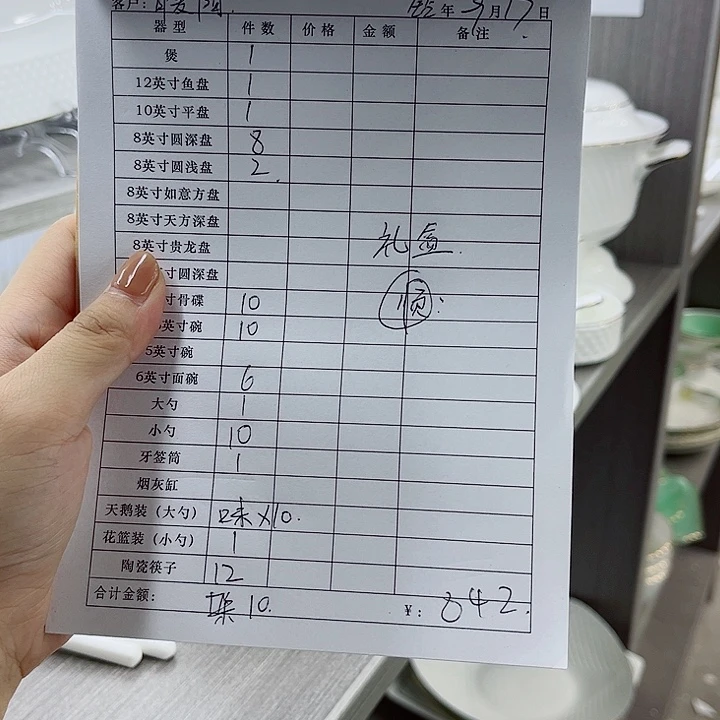 客户:
年 9月17日
器型 件数 价格 金额 备注
煲 1
12英寸鱼盘 1
10英寸平盘 1
8英寸圆深盘 8
8英寸圆浅盘 2
8英寸如意方盘
8英寸天方深盘
8英寸贵龙盘 礼盒
寸圆深盘
寸骨碟 10 顺:
英寸碗 10
5英寸碗
6英寸面碗 6
大勺 1
小勺 10
牙签筒 1
烟灰缸
天鹅装(大勺) 味×10.
花篮装(小勺) 1
陶瓷筷子 12
合计金额: 10. ¥: 842.